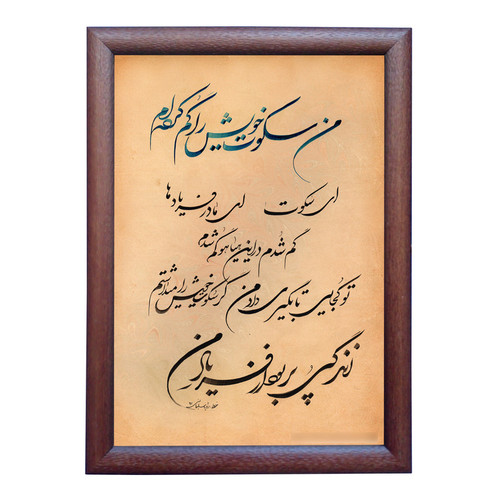 من سکوت خویش را گم کرده‌ام
ای سکوت ای مادر فریادها
گم شدم در این هیاهو گم شدم
تو کجایی تا بگیری داد من
گر سکوت خویش را میداشتم
زندگی پر بود از فریاد من